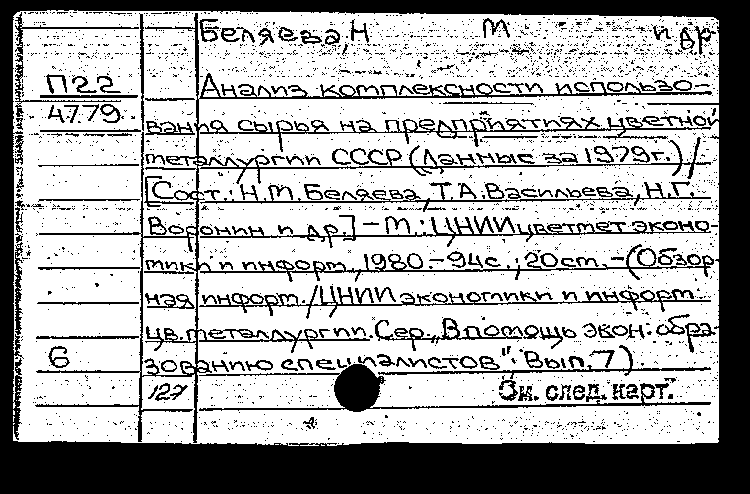 Беляева, Н М и др
П22 Анализ комплексности использо-
4779 вания сырья на предприятиях цветной
металлургии СССР (Данные за 1979г.) /
[Сост.: Н.М. Беляева, Т.А. Васильева, Н.Г.
Воронин и др.] - М.: ЦНИИцветмет эконо-
мики и информ., 1980. - 94с.; 20см. - (Обзор-
ная информ. / ЦНИИ экономики и информ.
цв. металлургии. Сер. „В помощь экон. обра-
6 зованию специалистов"; Вып. 7)
127 См. след. карт.